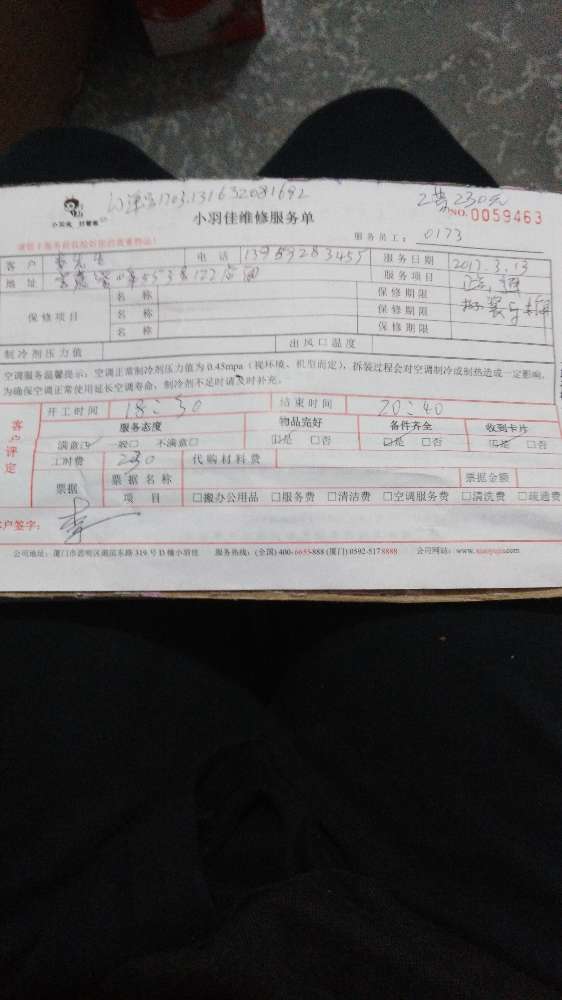 1703131632081692
2费230元
小羽佳 好管家
小羽佳维修服务单
NO.0059463
服务员工: 0173
客户 李先生 电话 服务日期 2017.3.13
地址 服务项目
保修项目 名称 保修期限
名称 保修期限
名称 保修期限
制冷剂压力值 出风口温度
空调服务温馨提示:空调正常制冷剂压力值为0.45mpa(视环境、机型而定),拆装过程会对空调制冷或制热造成一定影响,
为确保空调正常使用延长空调寿命,制冷剂不足时请及时补充。
客户评定
开工时间 18:30 结束时间 20:40
服务态度 物品完好 备件齐全 收到卡片
满意☑ 一般□ 不满意□ ☑是 □否 ☑是 □否 ☑是 □否
工时费 230 代购材料费
票据 票据名称 票据金额
项目 □搬办公用品 □服务费 □清洁费 □空调服务费 □清洗费 □疏通费
客户签字: 李
公司地址:厦门市思明区湖滨东路319号D楼小羽佳 服务热线:(全国)400-6655-888 (厦门)0592-5178888 公司网站:www.xiaoyujia.com